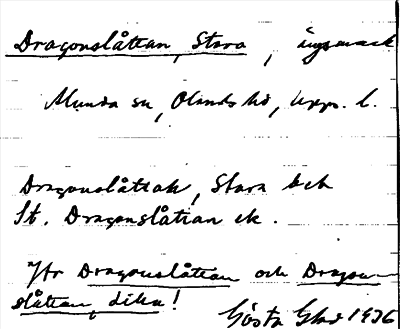 Dragonslåttan, Stora, ängsmark
Alunda sn, Olands hd, Upps. l.
Dragonslåttak, Stara bek
St. Dragonslåttan ek.
Jfr Dragonslåttan och Dragon-
slåttan, dika!
Gösta Glad 1936